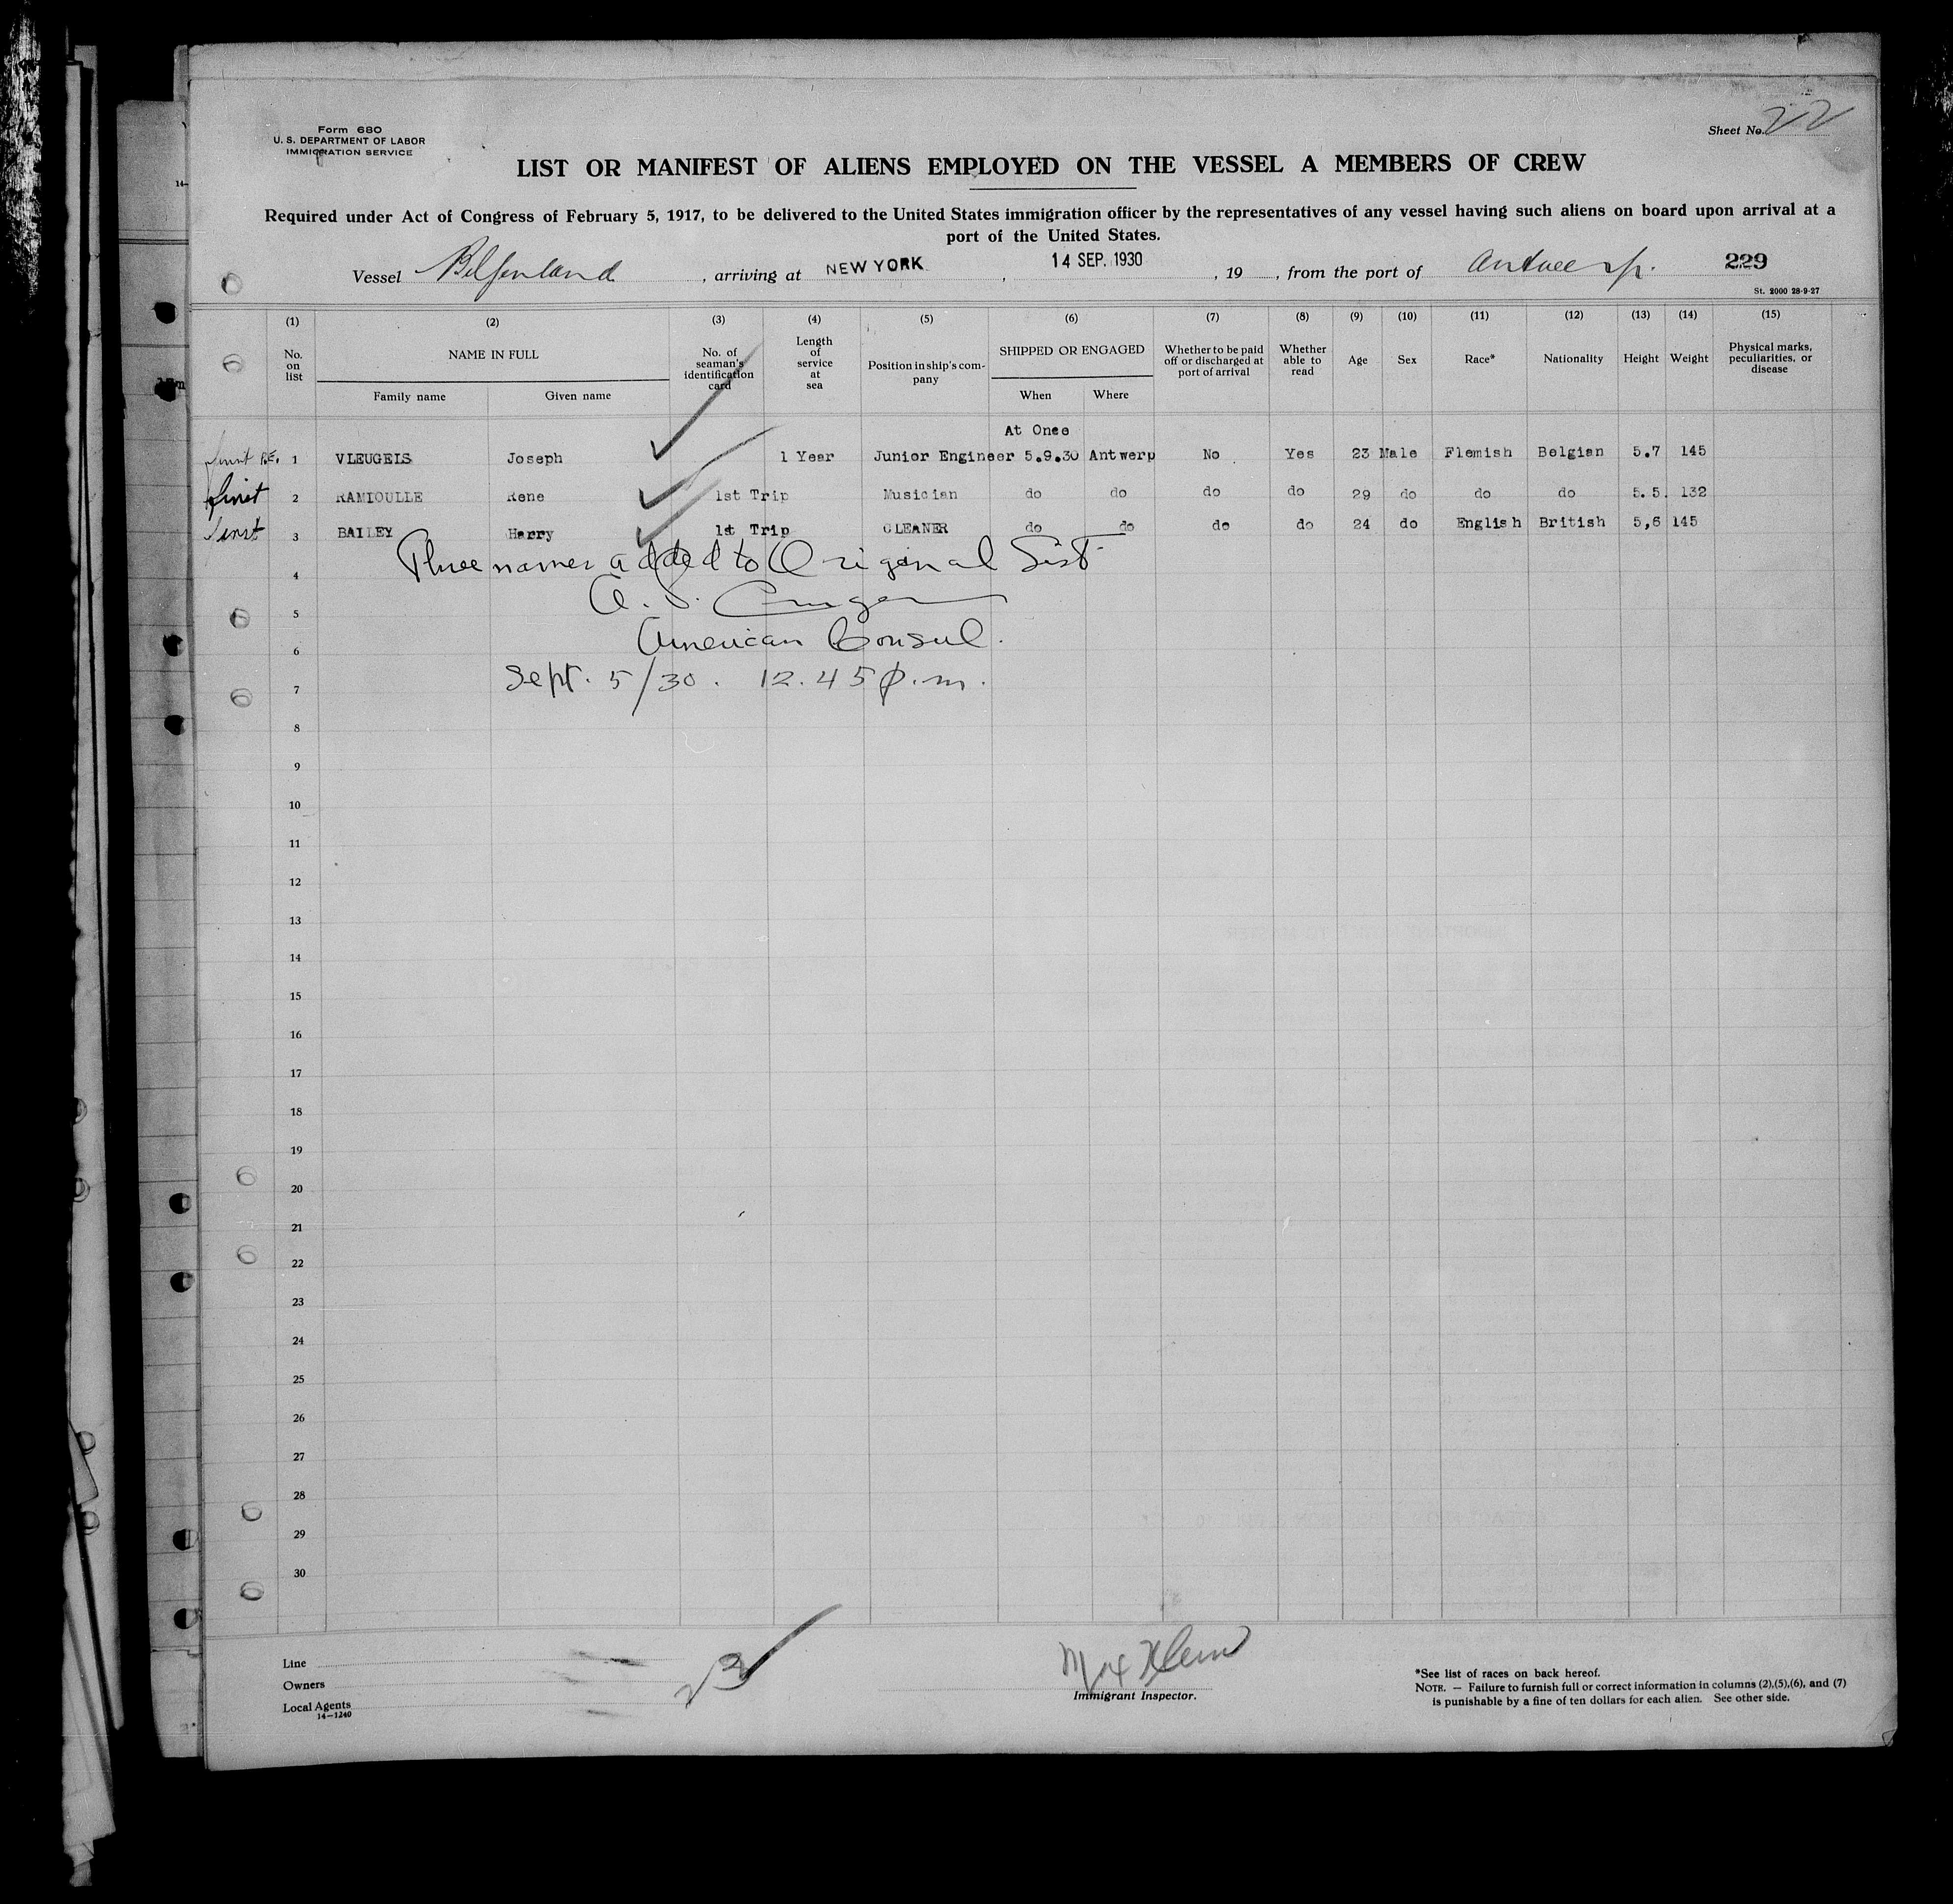 Form 680
U. S. DEPARTMENT OF LABOR
IMMIGRATION SERVICE
Sheet No. 22
LIST OR MANIFEST OF ALIENS EMPLOYED ON THE VESSEL A MEMBERS OF CREW
Required under Act of Congress of February 5, 1917, to be delivered to the United States immigration officer by the representatives of any vessel having such aliens on board upon arrival at a
port of the United States.
Vessel Belgenland, arriving at NEW YORK, 14 SEP. 1930, 19, from the port of Antwerp. 229
St. 2000 28-9-27
(1) (2) (3) (4) (5) (6) (7) (8) (9) (10) (11) (12) (13) (14) (15)
No. on list NAME IN FULL Family name Given name No. of seaman's identification card Length of service at sea Position in ship's company SHIPPED OR ENGAGED When Where Whether to be paid off or discharged at port of arrival Whether able to read Age Sex Race* Nationality Height Weight Physical marks, peculiarities, or disease
At Once
1 VLEUGELS Joseph 1 Year Junior Engineer 5.9.30 Antwerp No Yes 23 Male Flemish Belgian 5.7 145
2 RAMIOULLE Rene 1st Trip Musician do do do do 29 do do do 5.5. 132
3 BAILEY Harry 1st Trip CLEANER do do do do 24 do English British 5,6 145
Three names added to Original List
4
5
American Consul.
6
Sept. 5/30. 12.45 p.m.
7
8
9
10
11
12
13
14
15
16
17
18
19
20
21
22
23
24
25
26
27
28
29
30
Line
Owners
Local Agents
14—1240
3
Max Klein
Immigrant Inspector.
*See list of races on back hereof.
NOTE. — Failure to furnish full or correct information in columns (2),(5),(6), and (7)
is punishable by a fine of ten dollars for each alien. See other side.